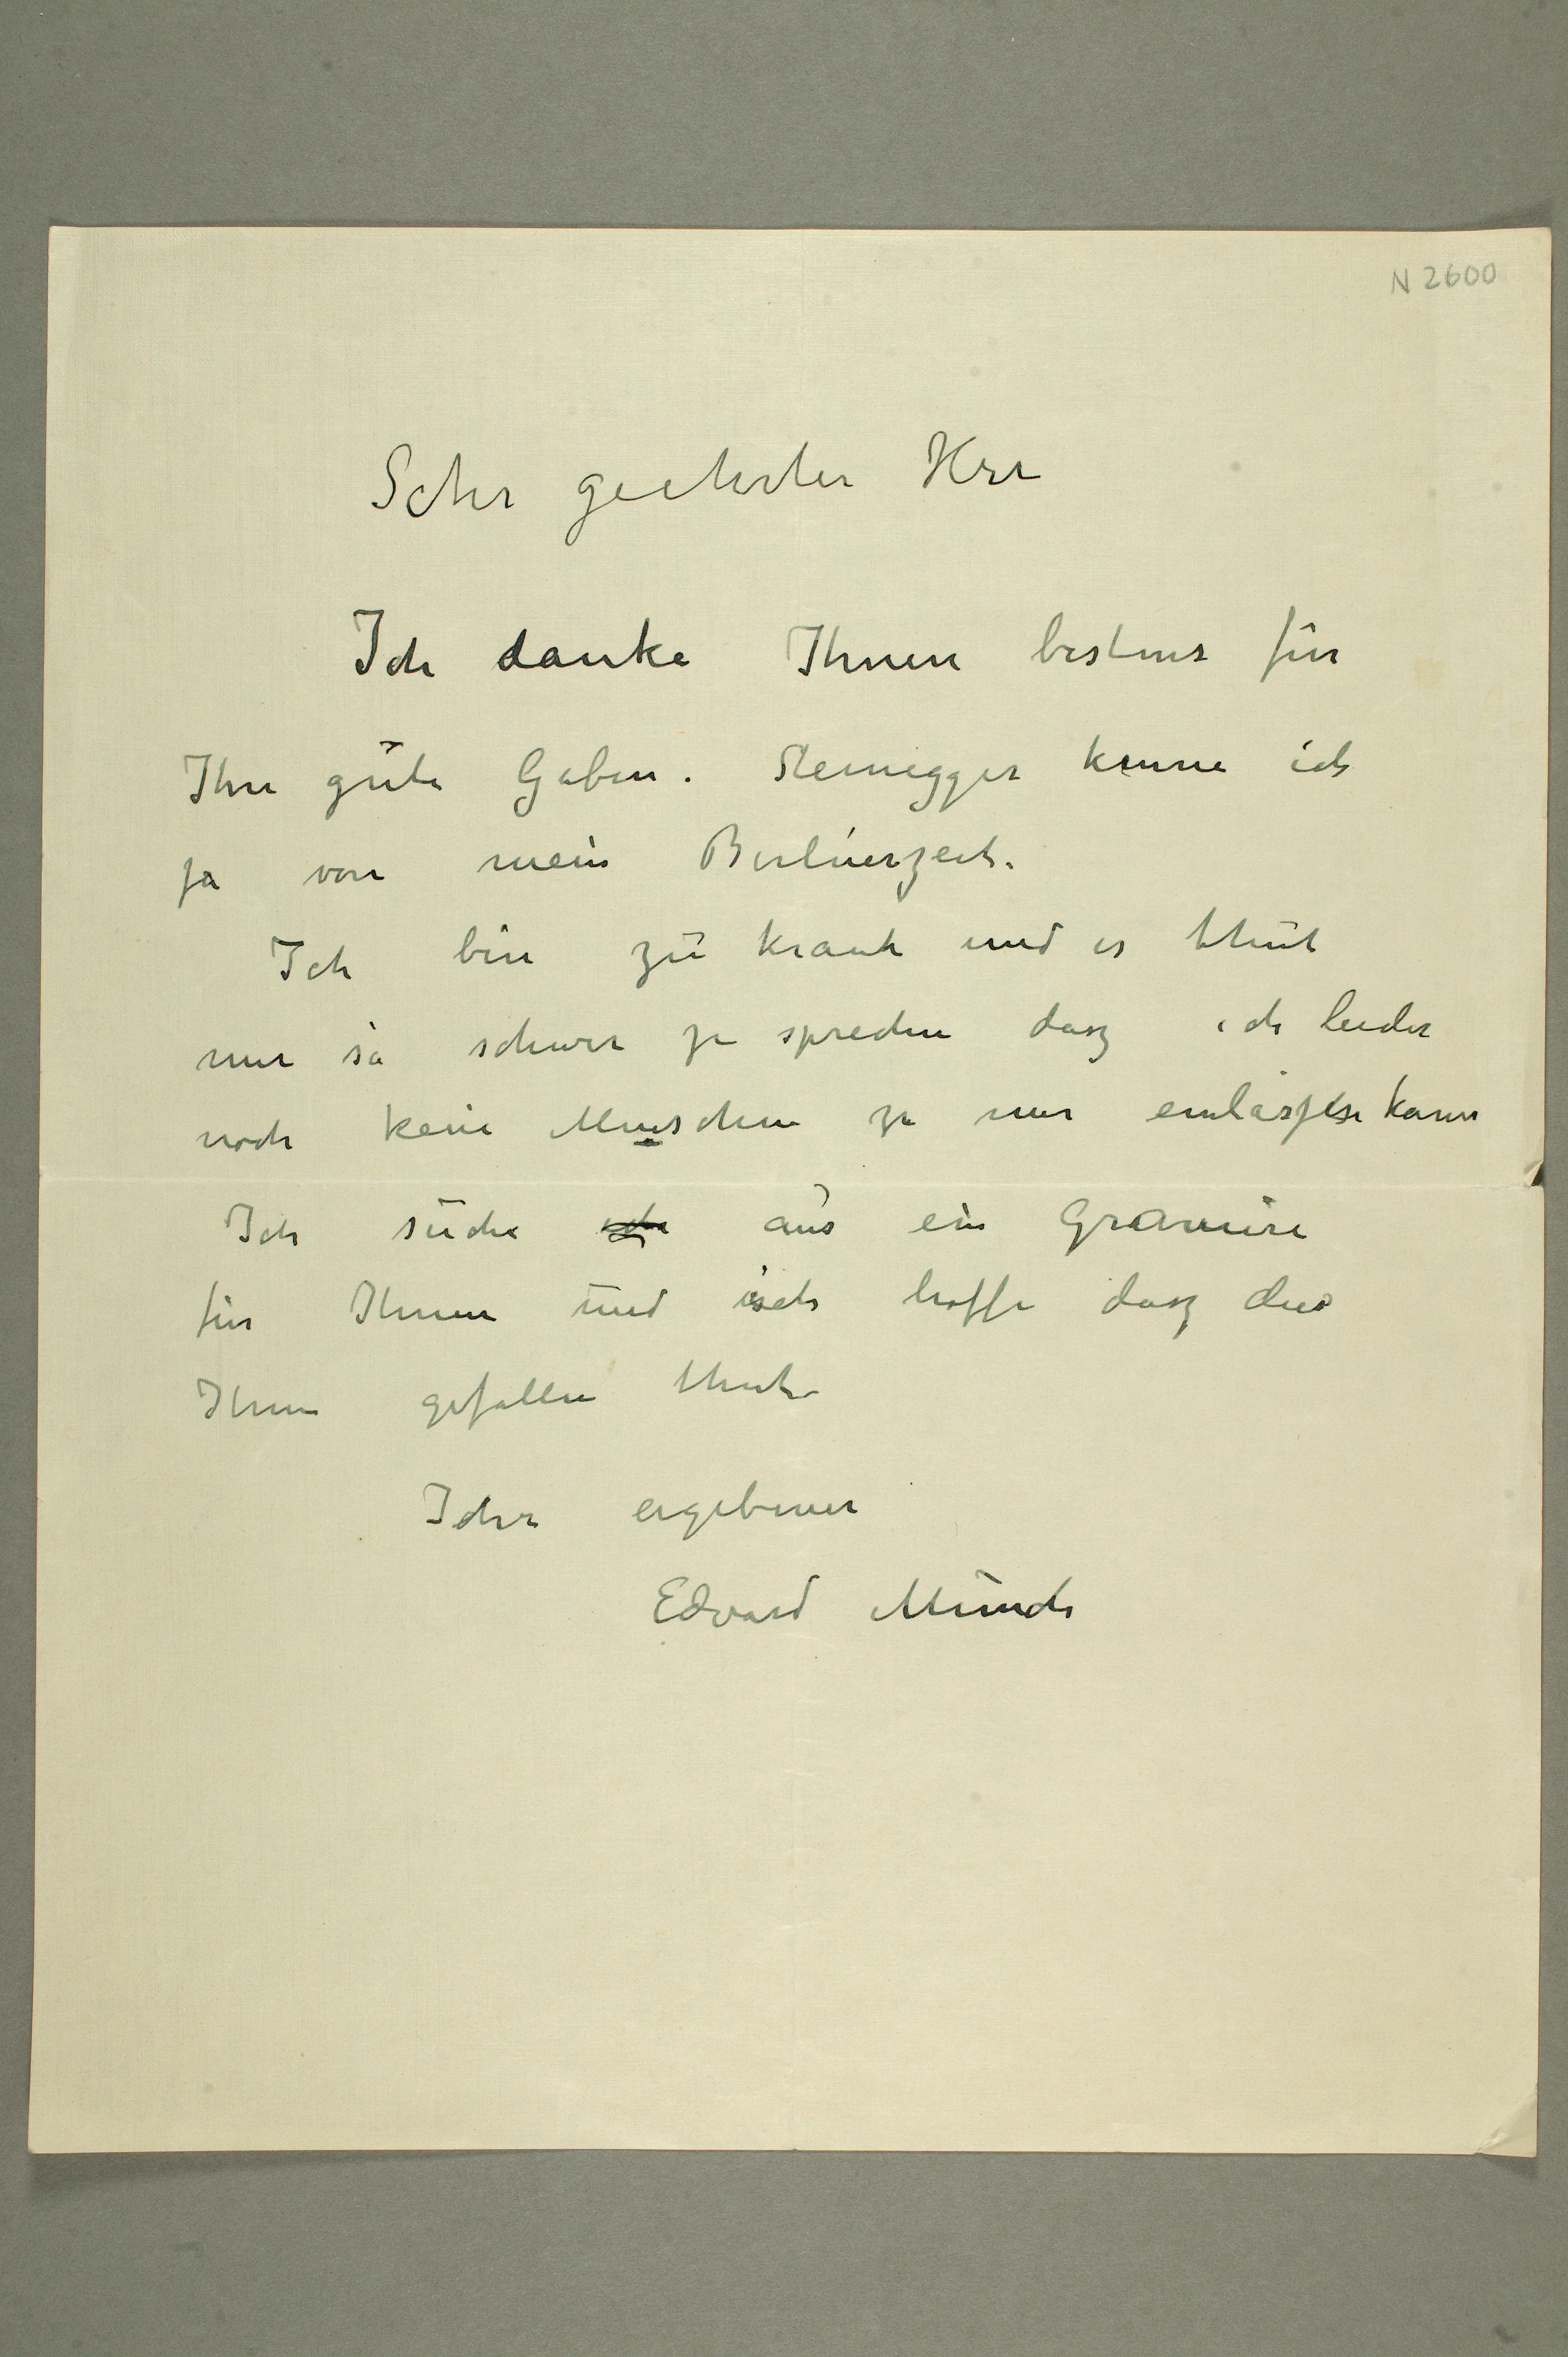 N 2600
Sehr geehrter Herr
Ich danke Ihnen bestens für
Ihre gute Gaben. Steinegger kenne ich
ja von mein Berlinerzeit.
Ich bin zu krank und es thut
mir so schwer zu sprechen dasz ich leider
noch kein Menschen zu mir einlaszen kann
Ich suche aus ein Gravüre
für Ihnen und ich hoffe dasz dies
Ihnen gefallen thut
Ihr ergebener
Edvard Munch